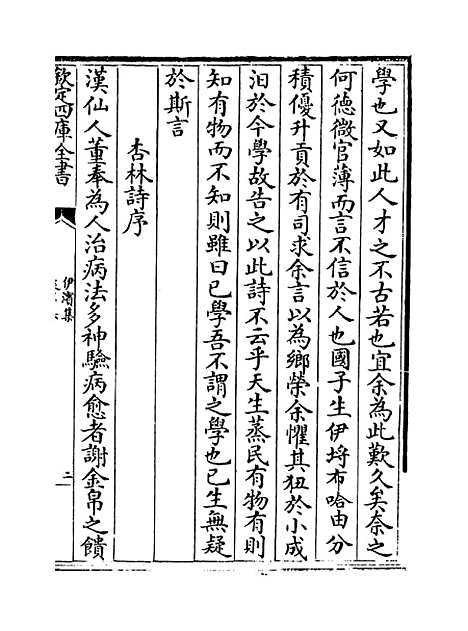 學也又如此人才之不古若也宜余為此歎久矣奈之
何德微官薄而言不信於人也國子生伊埒布哈由分
積優升貢於有司求余言以為鄉榮余懼其狃於小成
汨於今學故告之以此詩不云乎天生蒸民有物有則
知有物而不知則雖曰已學吾不謂之學也已生無疑
於斯言
杏林詩序
漢仙人董奉為人治病法多神驗病愈者謝金帛之饋
欽定四庫全書
伊濱集
二